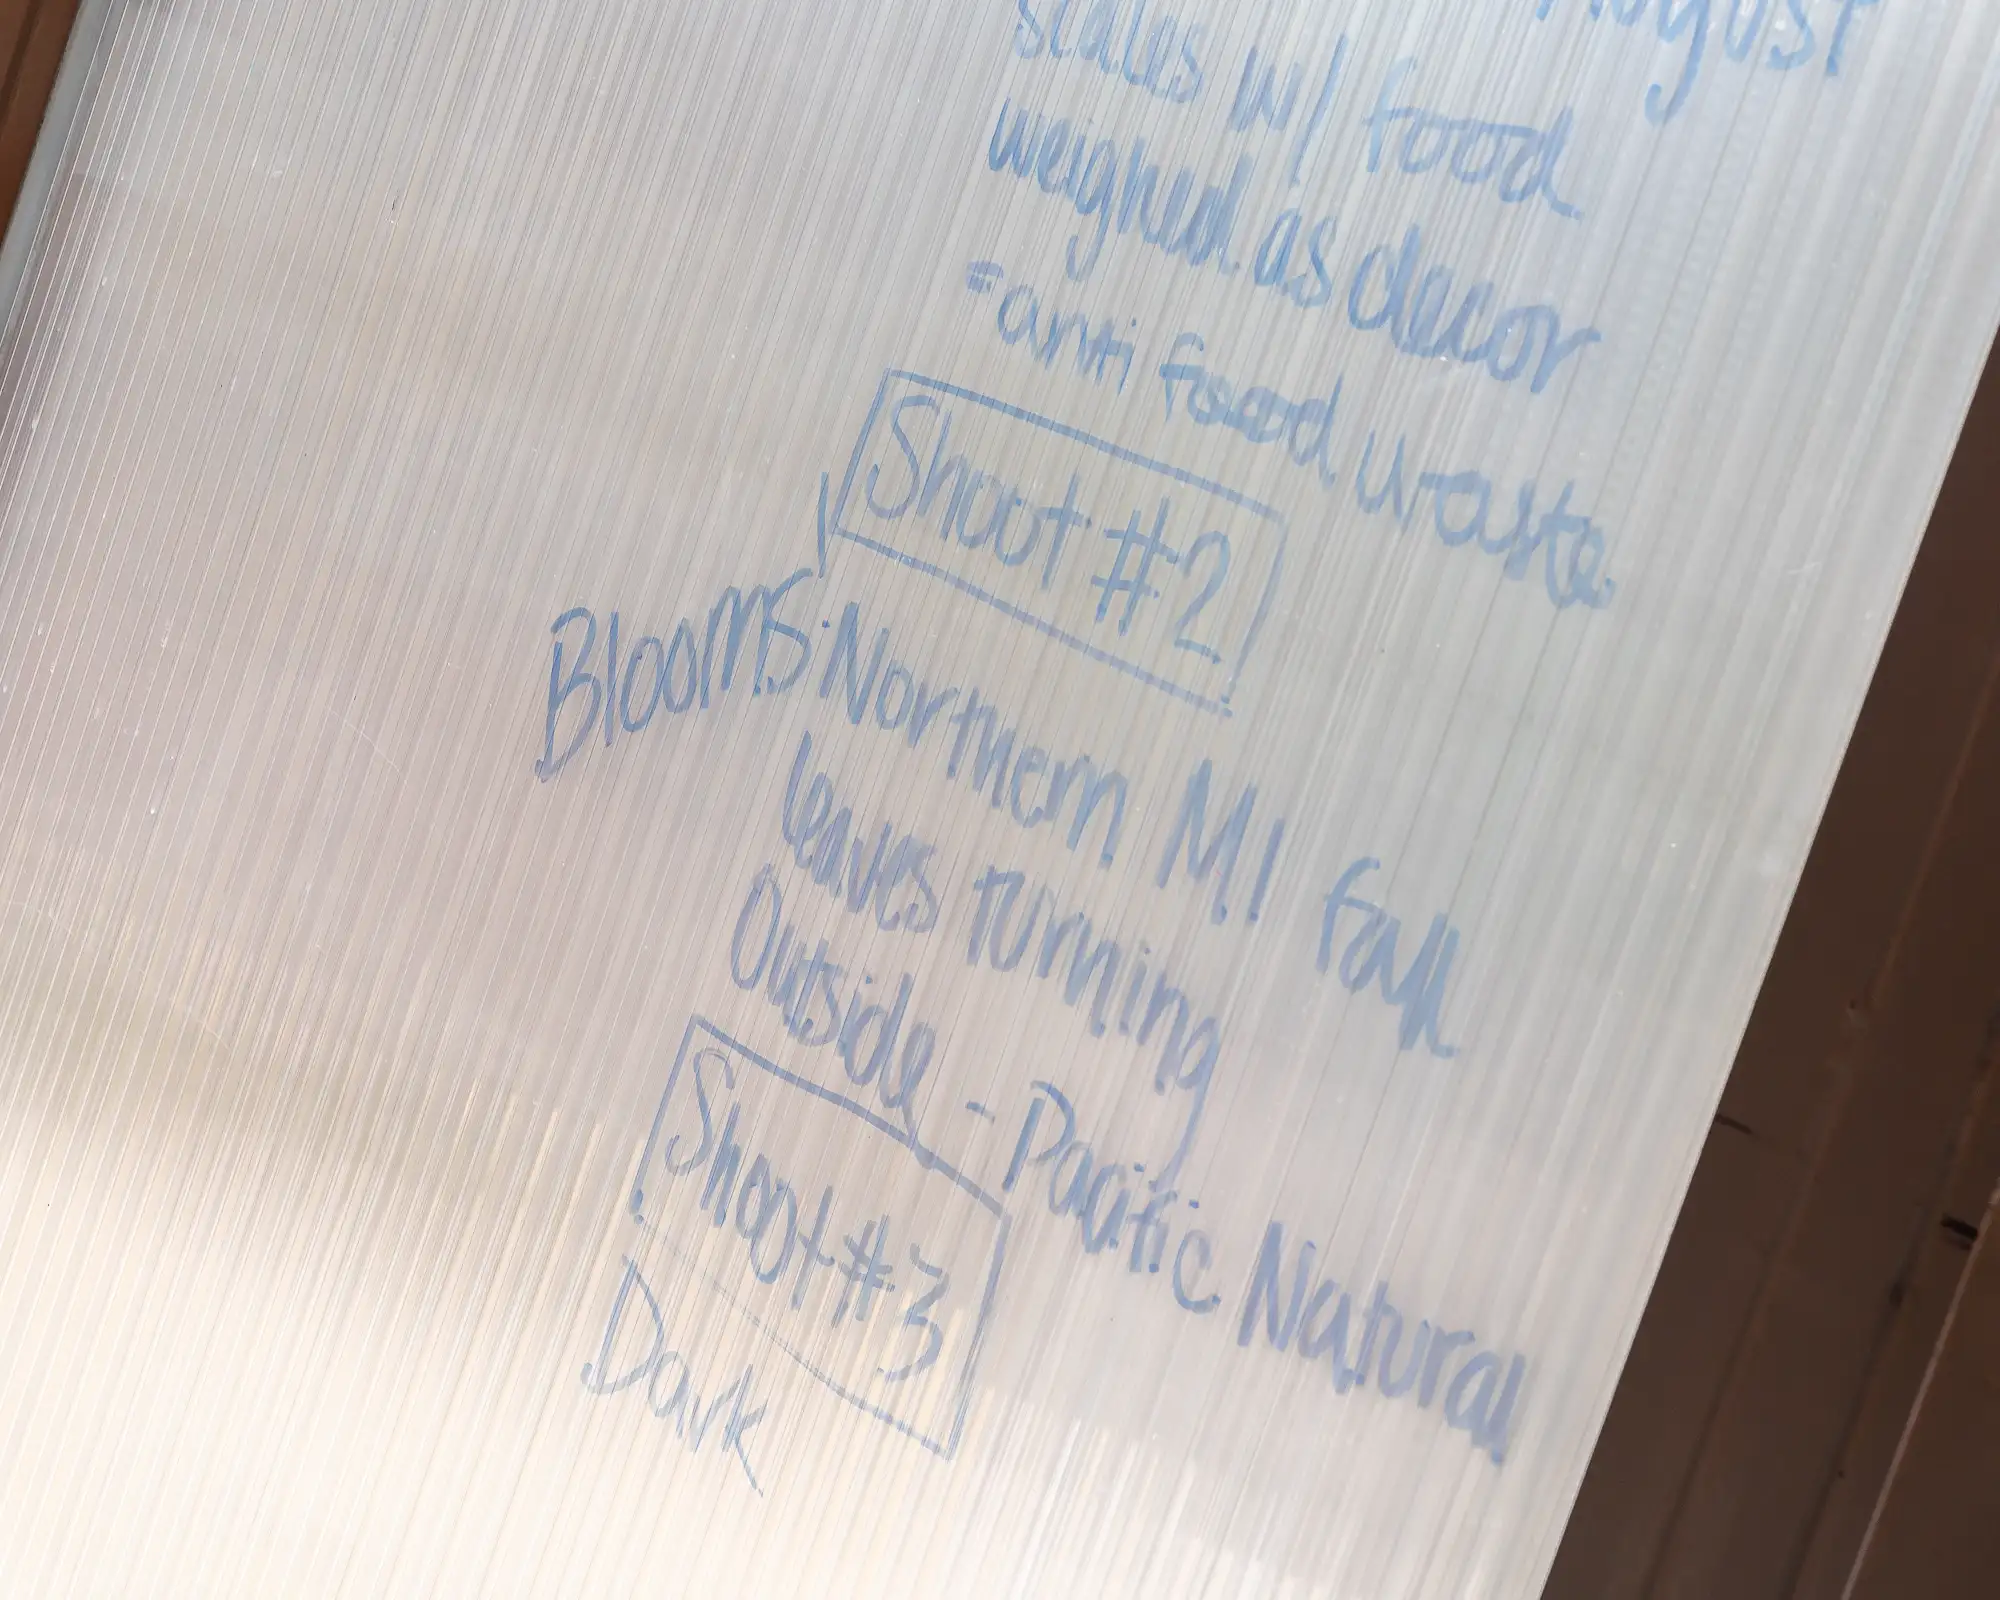 August
scales w/ food
weighed as decor
=anti food waste
Shoot #2
Blooms Northern MI fall
leaves turning
Outside - Pacific Natural
Shoot #3
Dark